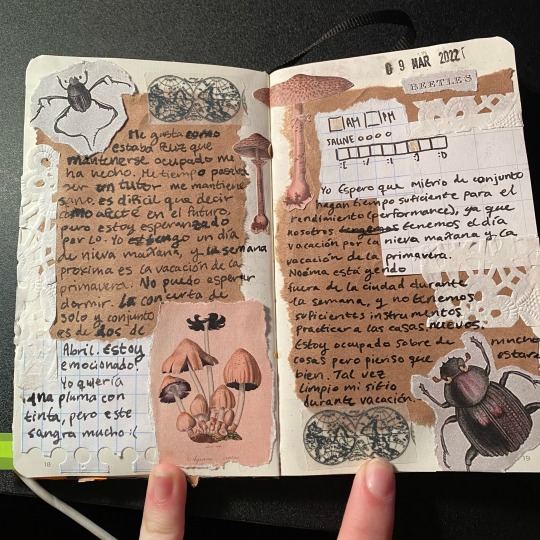 Me gusta como
estaba luz que
mantenerse ocupado me
ha hecho. Mi tiempo pasaba
ser un tutor me mantiene
sano. es difícil que decir
como acete en el futuro,
pero estoy esperanzado
por lo. Yo estengo un día
de nieva mañana, y la semana
proxima es la vacación de la
primavera. No puedo esperar
dormir. la concerta de
solo y conjunto
es de dos de
Abril. Estoy
emocionado!
Yo quería
una pluma con
tinta, pero este
sangra mucho :(
18
09 MAR 2022
BEETLES
AM PM
JAUNE
:( :/ :| :) :D
Yo Espero que mi trio de conjunto
hagan tiempo suficiente para el
rendimiento (performance), ya que
nosotros tenemos el día
vacación por la nieva mañana y la
vacación de la primavera.
Noema está yendo
fuera de la ciudad durante
la semana, y no tenemos
suficientes instrumentos
practicar a las casas nuevos.
Estoy ocupado sobre de mucho
cosas pero pienso que estara
bien. Tal vez
limpio mi sitio
durante vacación.
19